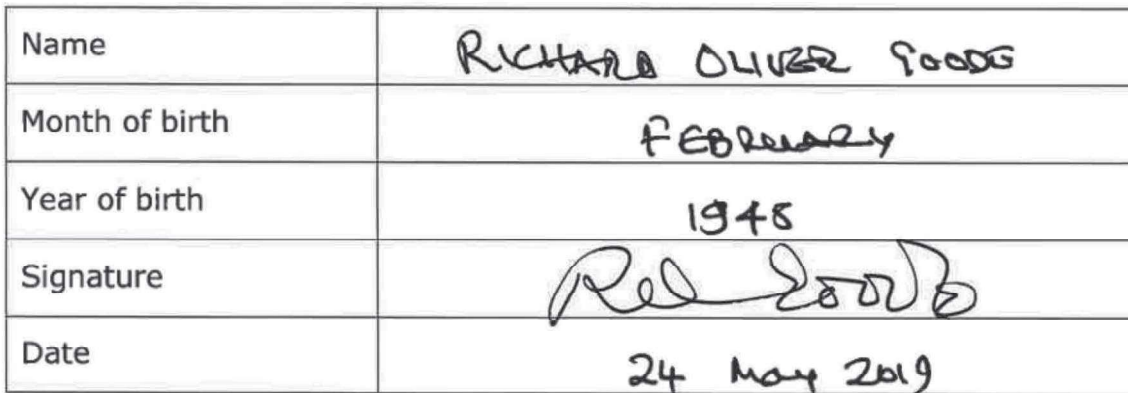 Name RICHARD OLIVER GOODE
Month of birth FEBRUARY
Year of birth 1948
Signature
Date 24 May 2019